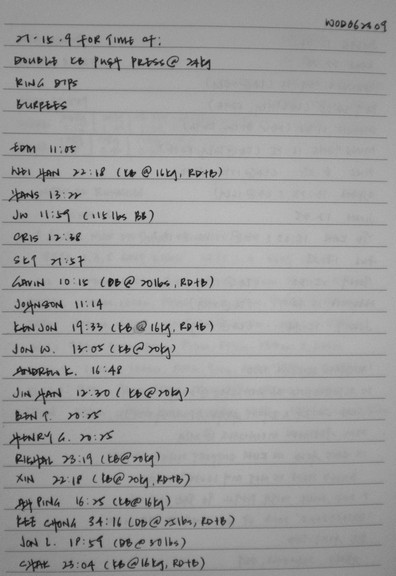 WOD062809
21-15-9 FOR TIME OF:
DOUBLE KB PUSH PRESS @ 24kg
RING DIPS
BURPEES
EDM 11:05
WEI HAN 22:18 (KB @ 16kg, RD+B)
HANS 13:22
JW 11:59 (115 lbs BB)
CRIS 12:38
21:57
GAVIN 10:15 (DB @ 20lbs, RD+B)
JOHNSON 11:14
KENJON 19:33 (KB @ 16kg, RD+B)
JON W. 13:05 (KB @ 20kg)
ANDREW K. 16:48
JIN HAN 12:30 (KB @ 20kg)
BEN T. 20:25
HENRY G. 20:25
23:19 (KB @ 20kg)
XIN 22:18 (KB @ 20kg, RD+B)
AH PING 16:25 (KB @ 16kg)
KEE CHONG 34:16 (DB @ 25lbs, RD+B)
JON L. 18:59 (DB @ 30lbs)
CHAK 23:04 (KB @ 16kg, RD+B)